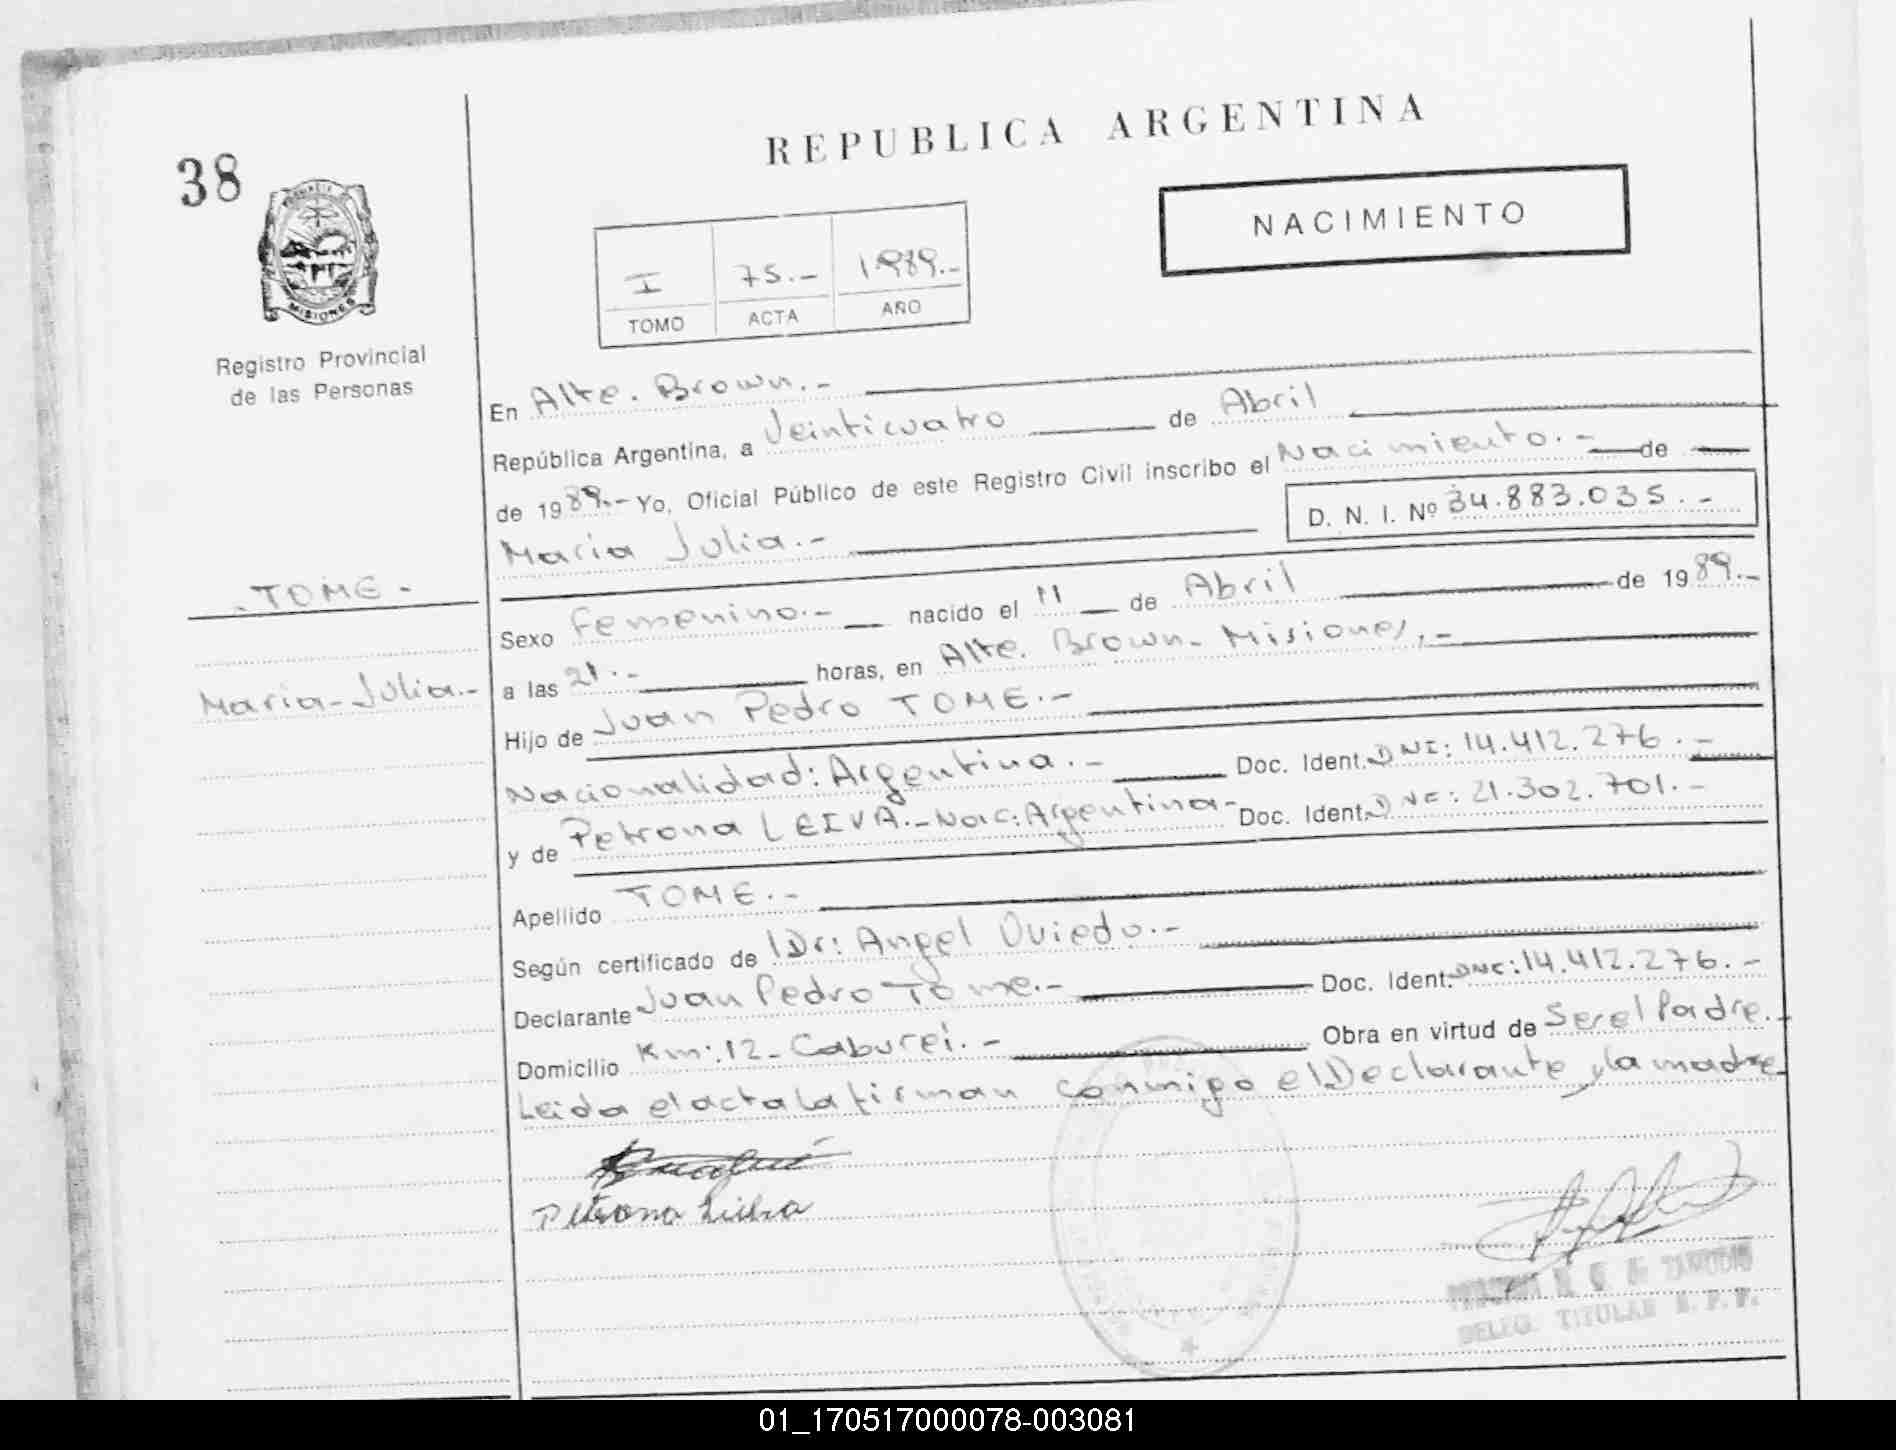 REPUBLICA ARGENTINA
38
NACIMIENTO
MISIONES
I 75.- 1989.-
TOMO ACTA AÑO
Registro Provincial
de las Personas
En Alte. Brown.-
República Argentina, a Veinticuatro de Abril
de 1989.- Yo, Oficial Público de este Registro Civil inscribo el Nacimiento.- de
Maria Julia.- D. N. I. Nº 34.883.035.-
.TOME.-
Sexo Femenino.- nacido el 11 de Abril de 1989.-
Maria-Julia.-
a las 21.- horas, en Alte. Brown- Misiones,-
Hijo de Juan Pedro TOME.-
Nacionalidad: Argentina.- Doc. Ident. DNI: 14.412.276.-
y de Petrona LEIVA.-Nac: Argentina- Doc. Ident. DNI: 21.302.701.-
Apellido TOME.-
Según certificado de Dr: Angel Oviedo.-
Declarante Juan Pedro Tome.- Doc. Ident. DNI: 14.412.276.-
Domicilio Km:12- Caburei.- Obra en virtud de Ser el Padre.-
Leida el acta la firman conmigo el Declarante y la madre
Petrona
DELEG. TITULAR R. P. P.
01_170517000078-003081